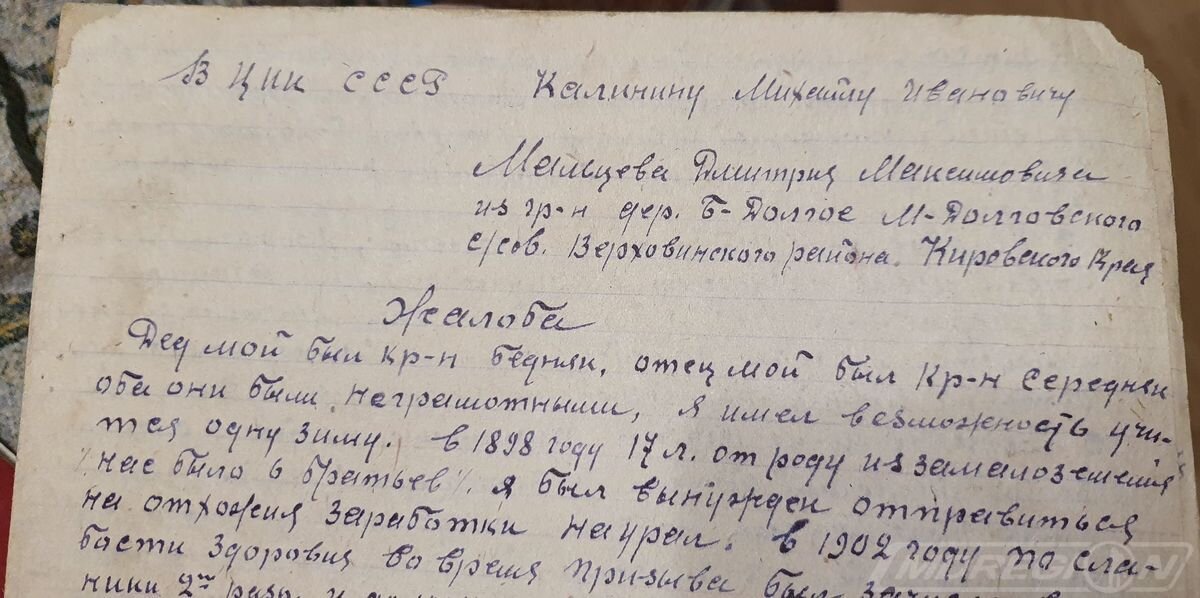 В ЦИК СССР Калинину Михаилу Ивановичу
Мальцева Дмитрия Максимовича
из гр-н дер. Б-Долгое М-Долговского
с/сов. Верховинского района. Кировского Края
Жалоба
Дед мой был кр-н бедняк, отец мой был кр-н середняк
оба они были неграмотными, я имел возможность учи-
тся одну зиму. в 1898 году 17 л. от роду из замалоземелия
/нас было 6 братьев/. я был вынужден отправиться
на отхожия заработки на урал. в 1902 году по сла-
бости здоровия во время призыва был
ники 2